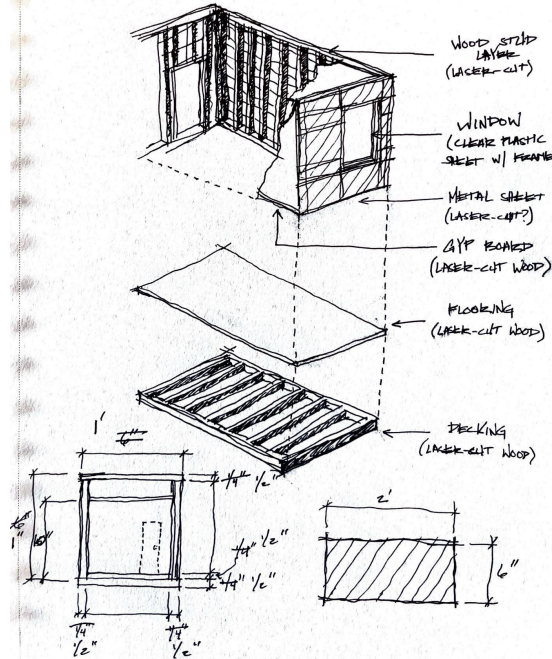 WOOD STUD
LAYER
(LASER-CUT)
WINDOW
(CLEAR PLASTIC
SHEET W/ FRAME
METAL SHEET
(LASER-CUT?)
GYP BOARD
(LASER-CUT WOOD)
FLOORING
(LASER-CUT WOOD)
DECKING
(LASER-CUT WOOD)
1'
1/4" 1/2"
1"
1/4" 1/2"
1/4" 1/2"
1/4" 1/4"
1/2" 1/2"
2'
6"